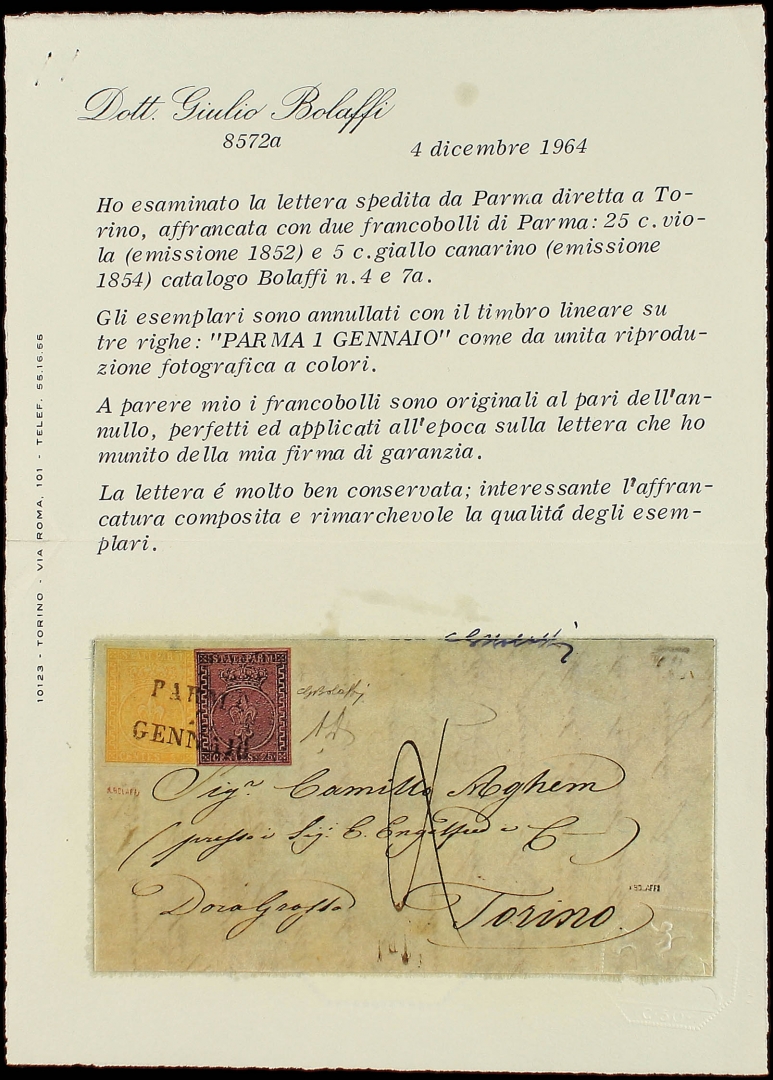 Dott. Giulio Bolaffi
8572a
4 dicembre 1964
Ho esaminato la lettera spedita da Parma diretta a To-
rino, affrancata con due francobolli di Parma: 25 c. vio-
la (emissione 1852) e 5 c. giallo canarino (emissione
1854) catalogo Bolaffi n. 4 e 7a.
Gli esemplari sono annullati con il timbro lineare su
tre righe: "PARMA 1 GENNAIO" come da unita riprodu-
zione fotografica a colori.
A parere mio i francobolli sono originali al pari dell'an-
nullo, perfetti ed applicati all'epoca sulla lettera che ho
munito della mia firma di garanzia.
La lettera é molto ben conservata; interessante l'affran-
catura composita e rimarchevole la qualitá degli esem-
plari.
10123 - TORINO - VIA ROMA, 101 - TELEF. 55.16.55
STATI PARM
PARMA
GENNAIO
CENTES. 25
A. BOLAFFI
Sig.r Camillo Aghem
(presso i Sig. E. Engelfred e C
Dora Grossa
Torino.
A. BOLAFFI